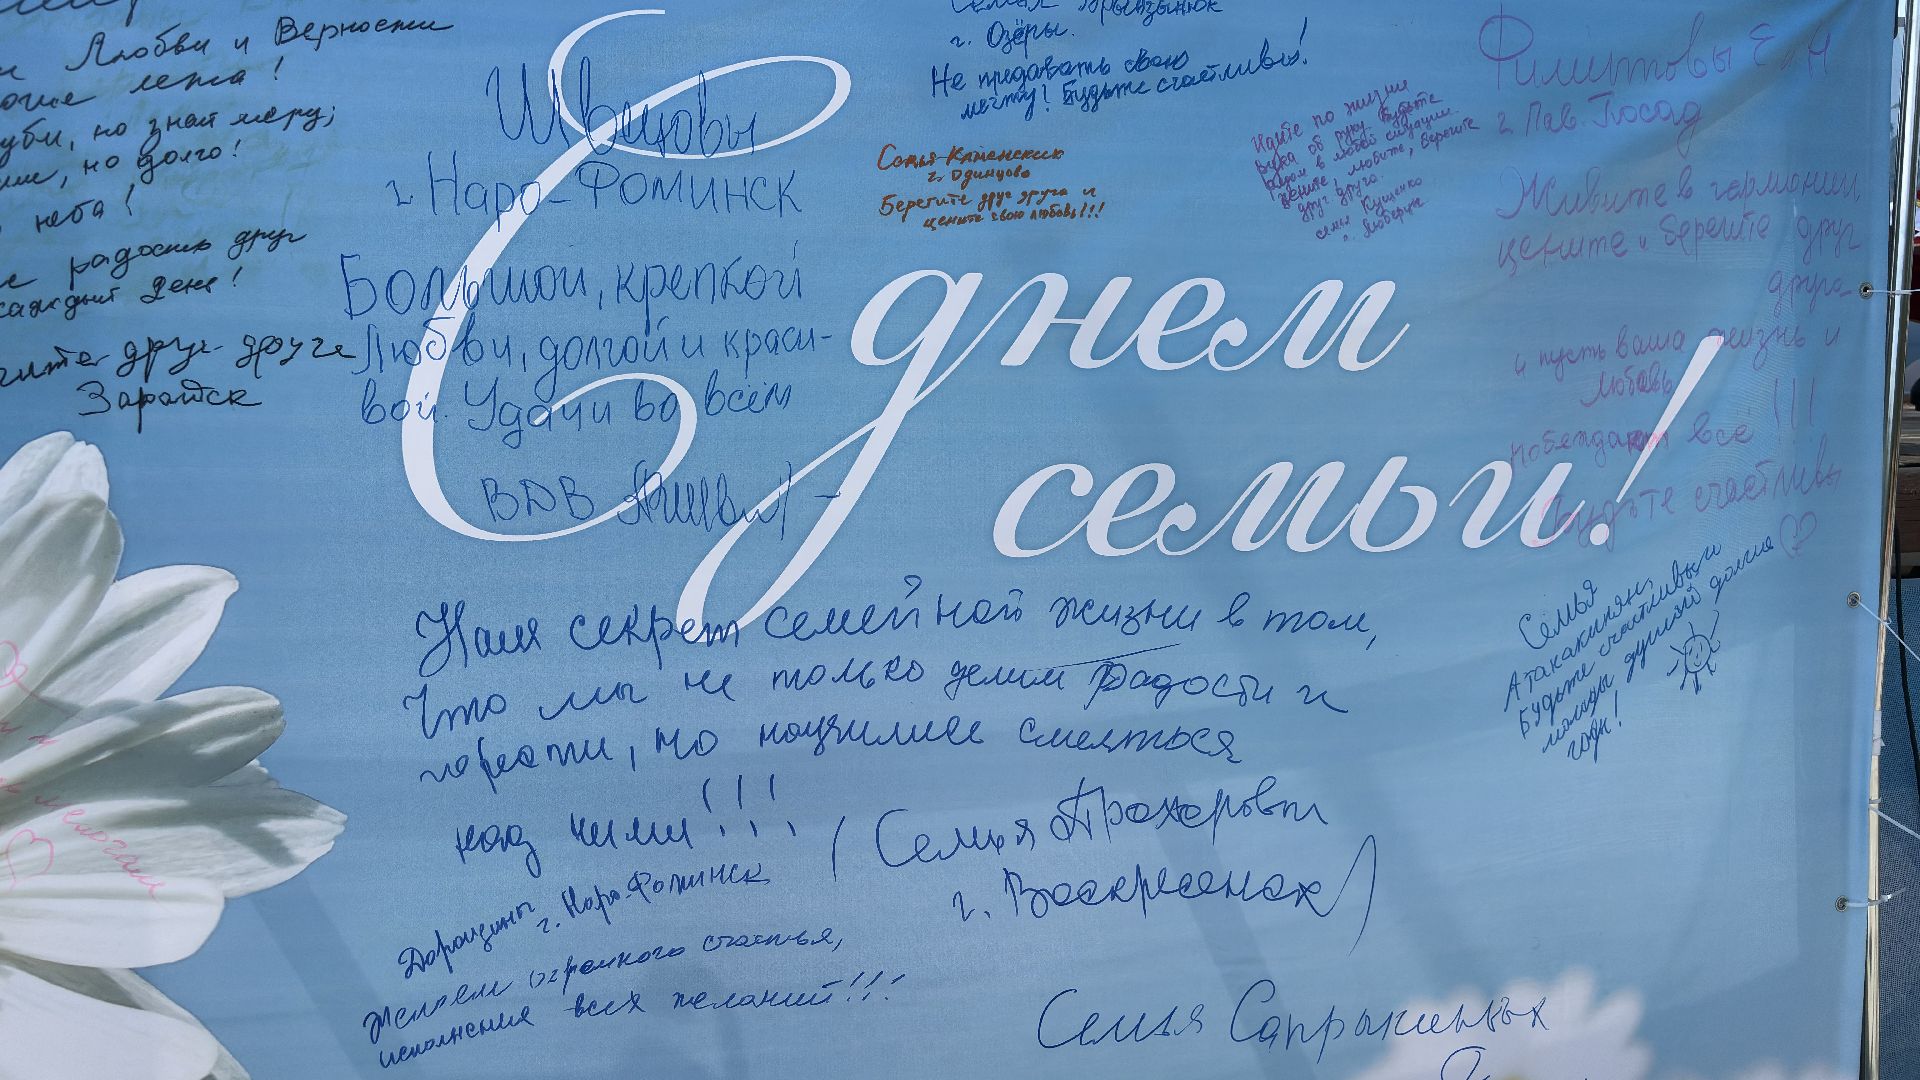 Любви и Верности
лета!
но знай меру;
но долго!
неба!
радостью друг
каждый день!
друг друга
Зарайск
Швецовы
г. Наро-Фоминск
Большой, крепкой
Любви, долгой и краси-
вой. Удачи во всём
ВДВ
г. Озёры.
Не предавать свою
мечту! Будьте счастливы!
Семья Каменских
г. Одинцово
Берегите друг друга и
цените свою любовь!!!
Идите по жизни
рука об руку. Будьте
рядом в любой ситуации
цените, любите, берегите
друг друга.
семья Кущенко
г. Люберцы
Филиповы Е и Н
г. Пав. Посад
Живите в гармонии,
цените и берегите друг
друга
и пусть ваша жизнь и
любовь
побеждают всё!!!
Будьте счастливы
С днем
семьи!
Семья
Атакакинян,
Будьте счастливы и
молоды душой долгие
годы!
Наш секрет семейной жизни в том,
Что мы не только делим радости и
горести, но научились смеяться
над ними!!!
(Семья Прохоровы
г. Воскресенск)
Дорощины
г. Наро-Фоминск
Желаем огромного счастья,
исполнения всех желаний!!!
Семья Сапрыкиных